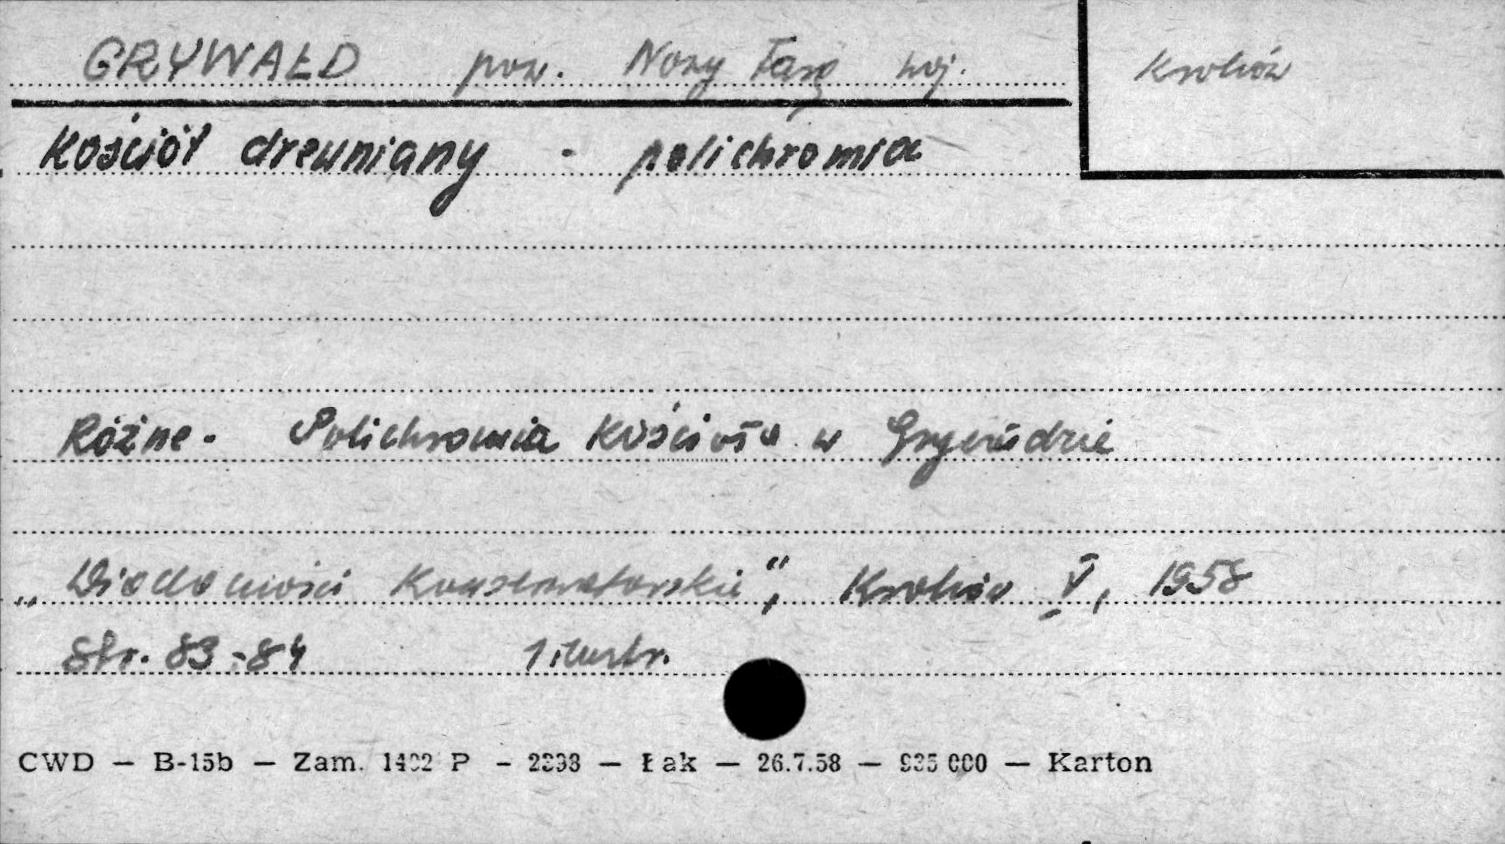 GRYWAŁD pow. Nowy Targ woj. Kraków
Kościół drewniany - polichromia
Różne - Polichromia kościoła w Grywałdzie
„Wiadomości Konserwatorskie", Kraków V, 1958
Str. 83-84 1 ilustr.
CWD — B-15b — Zam. P - — Łak — 26.7.58 — 935 000 — Karton